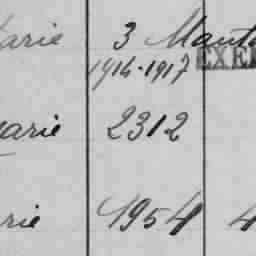 arie 3 Mant
1914-1917 EXE
arie 2312
rie 1954 4